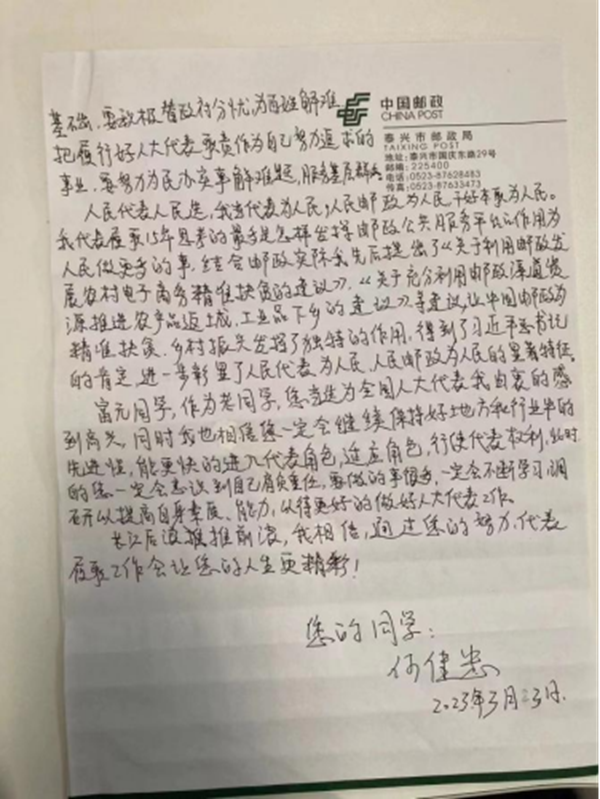 中国邮政
CHINA POST
泰兴市邮政局
TAIXING POST
地址：泰兴市国庆东路29号
邮编：225400
电话：0523-87628483
传真：0523-87633473
基础，要积极替政府分忧，为百姓解难
把履行好人大代表职责作为自己努力追求的
事业，要努力为民办实事解难题，服务基层群众
人民代表人民选，我当代表为人民，人民邮政为人民，干好本职为人民。
我代表履职15年思考的最多是怎样发挥邮政公共服务平台的作用为
人民做更多的事，结合邮政实际我先后提出了《关于利用邮政发
展农村电子商务精准扶贫的建议》，《关于充分利用邮政渠道资
源推进农产品返城，工业品下乡的建议》等建议，让中国邮政为
精准扶贫、乡村振兴发挥了独特的作用，得到了习近平总书记
的肯定，进一步彰显了人民代表为人民，人民邮政为人民的显著特征。
富元同学，作为老同学，您当选为全国人大代表我由衷的感
到高兴，同时我也相信您一定会继续保持好地方和行业中的
先进性，能更快的进入代表角色，适应角色，行使代表权利，此时
的您一定会意识到自己肩负重任，要做的事很多，一定会不断学习，调
研以提高自身素质、能力，以待更好的做好人大代表工作。
长江后浪推前浪，我相信，通过您的努力，代表
履职工作会让您的人生更精彩！
您的同学：
何健忠
2023年3月23日.